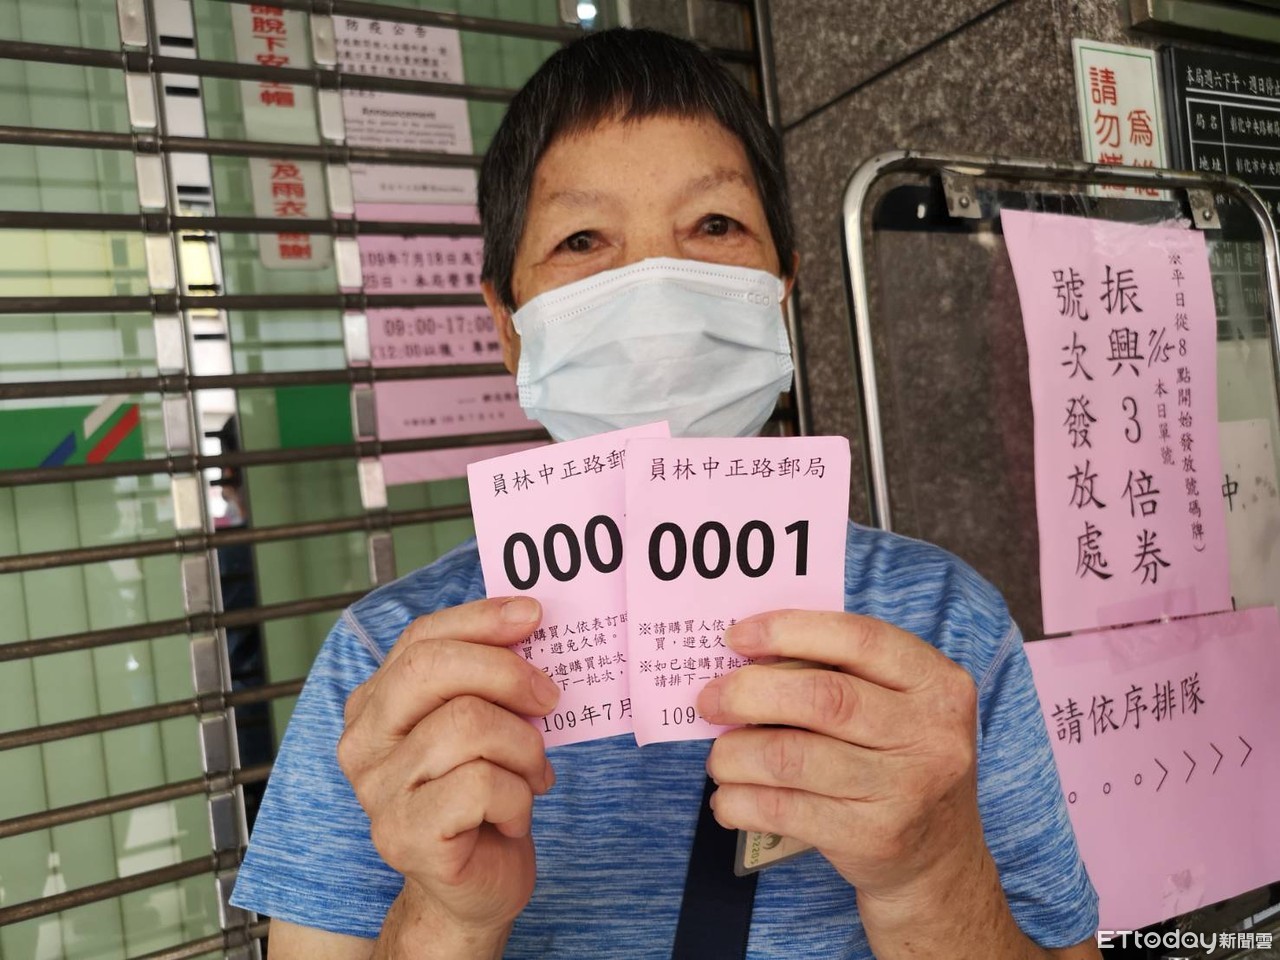 請脫下安全帽
及雨衣 謝謝
防疫公告
Announcement
109年7月18日
25日
09:00-17:00
(12:00以後
員林中正路郵
000
請購買人依表訂時
買，避免久候。
已逾購買批次
下一批次，
109年7月
員林中正路郵局
0001
※請購買人依表
買，避免久
※如已逾購買批次
請排下一批
109
為維
請勿
本局週六下午、週日停止
局名
彰化中央路郵
地址
彰化市中央
平日從8點開始發放號碼牌)
7/15 本日單號
振興3倍券
號次發放處
中
請依序排隊
。。。>>>>
ETtoday新聞雲